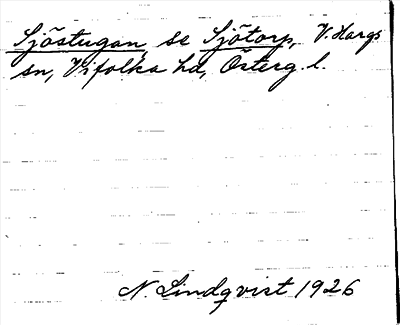 Sjöstugan, se Sjötorp, V. Hargs
sn, Vifolka hd, Österg. l.
N. Lindqvist 1926